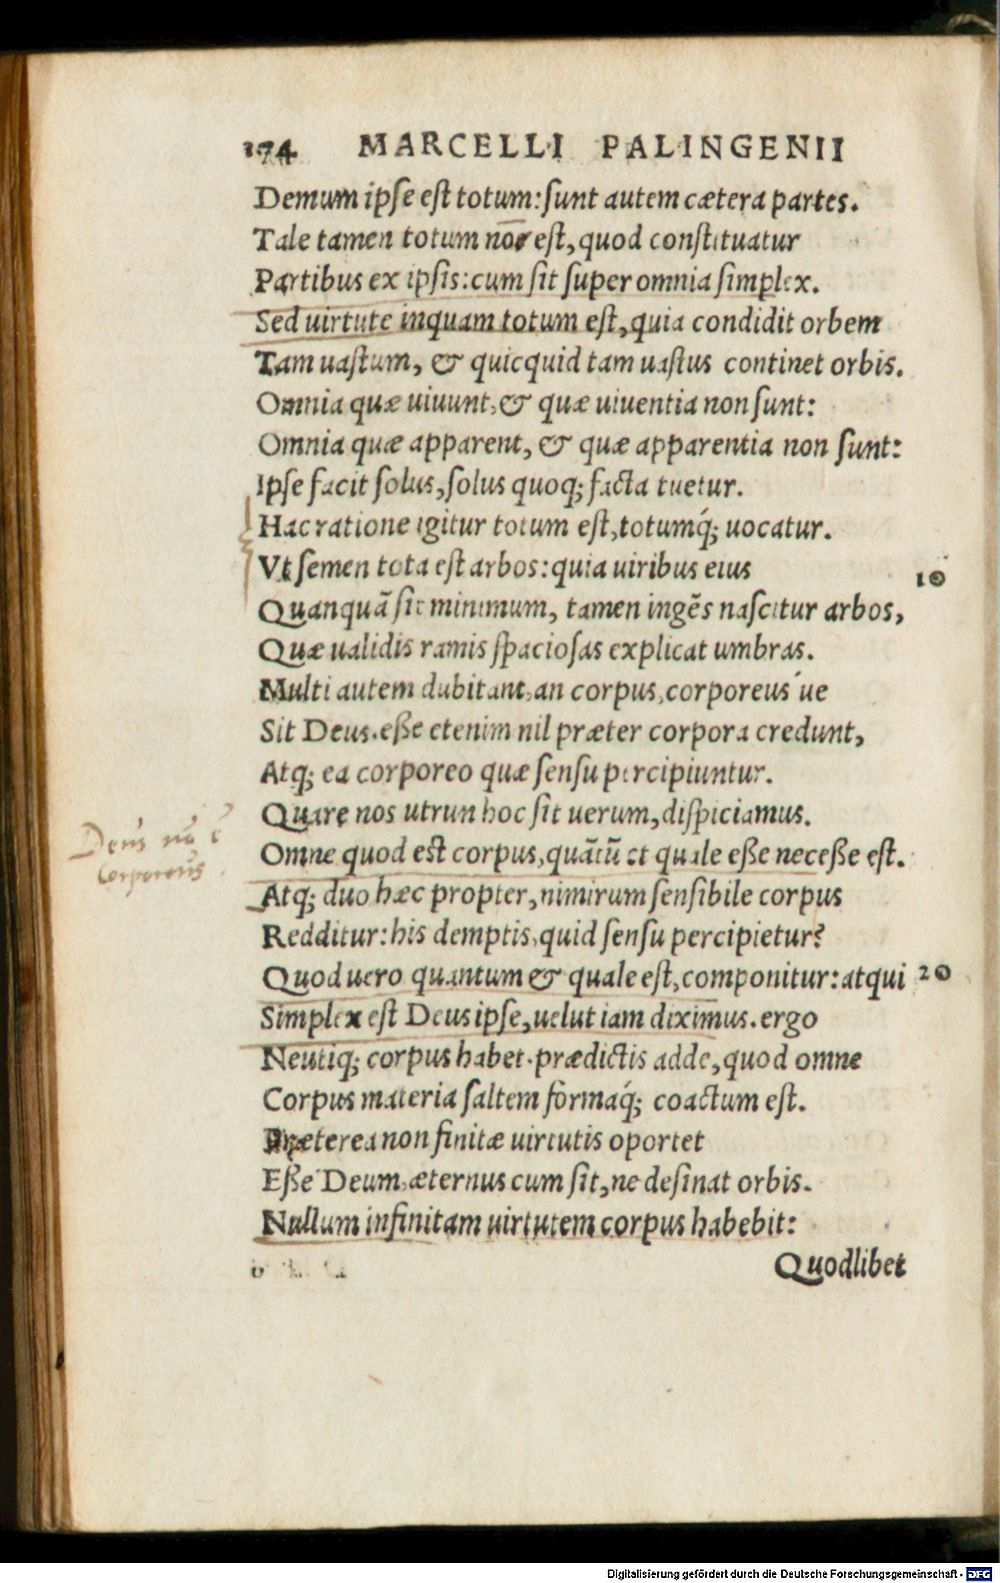 174 MARCELLI PALINGENII
Demum ipse est totum: sunt autem cætera partes.
Tale tamen totum nõ est, quod constituatur
Partibus ex ipsis: cum sit super omnia simplex.
Sed uirtute inquam totum est, quia condidit orbem
Tam uastum, & quicquid tam uastus continet orbis.
Omnia quæ uiuunt, & quæ uiuentia non sunt:
Omnia quæ apparent, & quæ apparentia non sunt:
Ipse facit solus, solus quoq; facta tuetur.
Hac ratione igitur totum est, totumq́; uocatur.
Vt semen tota est arbos: quia uiribus eius 10
Quanquã sit minimum, tamen ingẽs nascitur arbos,
Quæ ualidis ramis spaciosas explicat umbras.
Multi autem dubitant, an corpus, corporeus ue
Sit Deus. eße etenim nil præter corpora credunt,
Atq; ea corporeo quæ sensu percipiuntur.
Quare nos utrun hoc sit uerum, dispiciamus.
Deus nõ ẽ
Corporeus
Omne quod est corpus, quãtũ et quale eße neceße est.
Atq; duo hæc propter, nimirum sensibile corpus
Redditur: his demptis, quid sensu percipietur?
Quod uero quantum & quale est, componitur: atqui 20
Simplex est Deus ipse, uelut iam diximus. ergo
Neutiq; corpus habet. prædictis adde, quod omne
Corpus materia saltem formaq́; coactum est.
Præterea non finitæ uirtutis oportet
Eße Deum, æternus cum sit, ne desinat orbis.
Nullum infinitam uirtutem corpus habebit:
Quodlibet
Digitalisierung gefördert durch die Deutsche Forschungsgemeinschaft - DFG